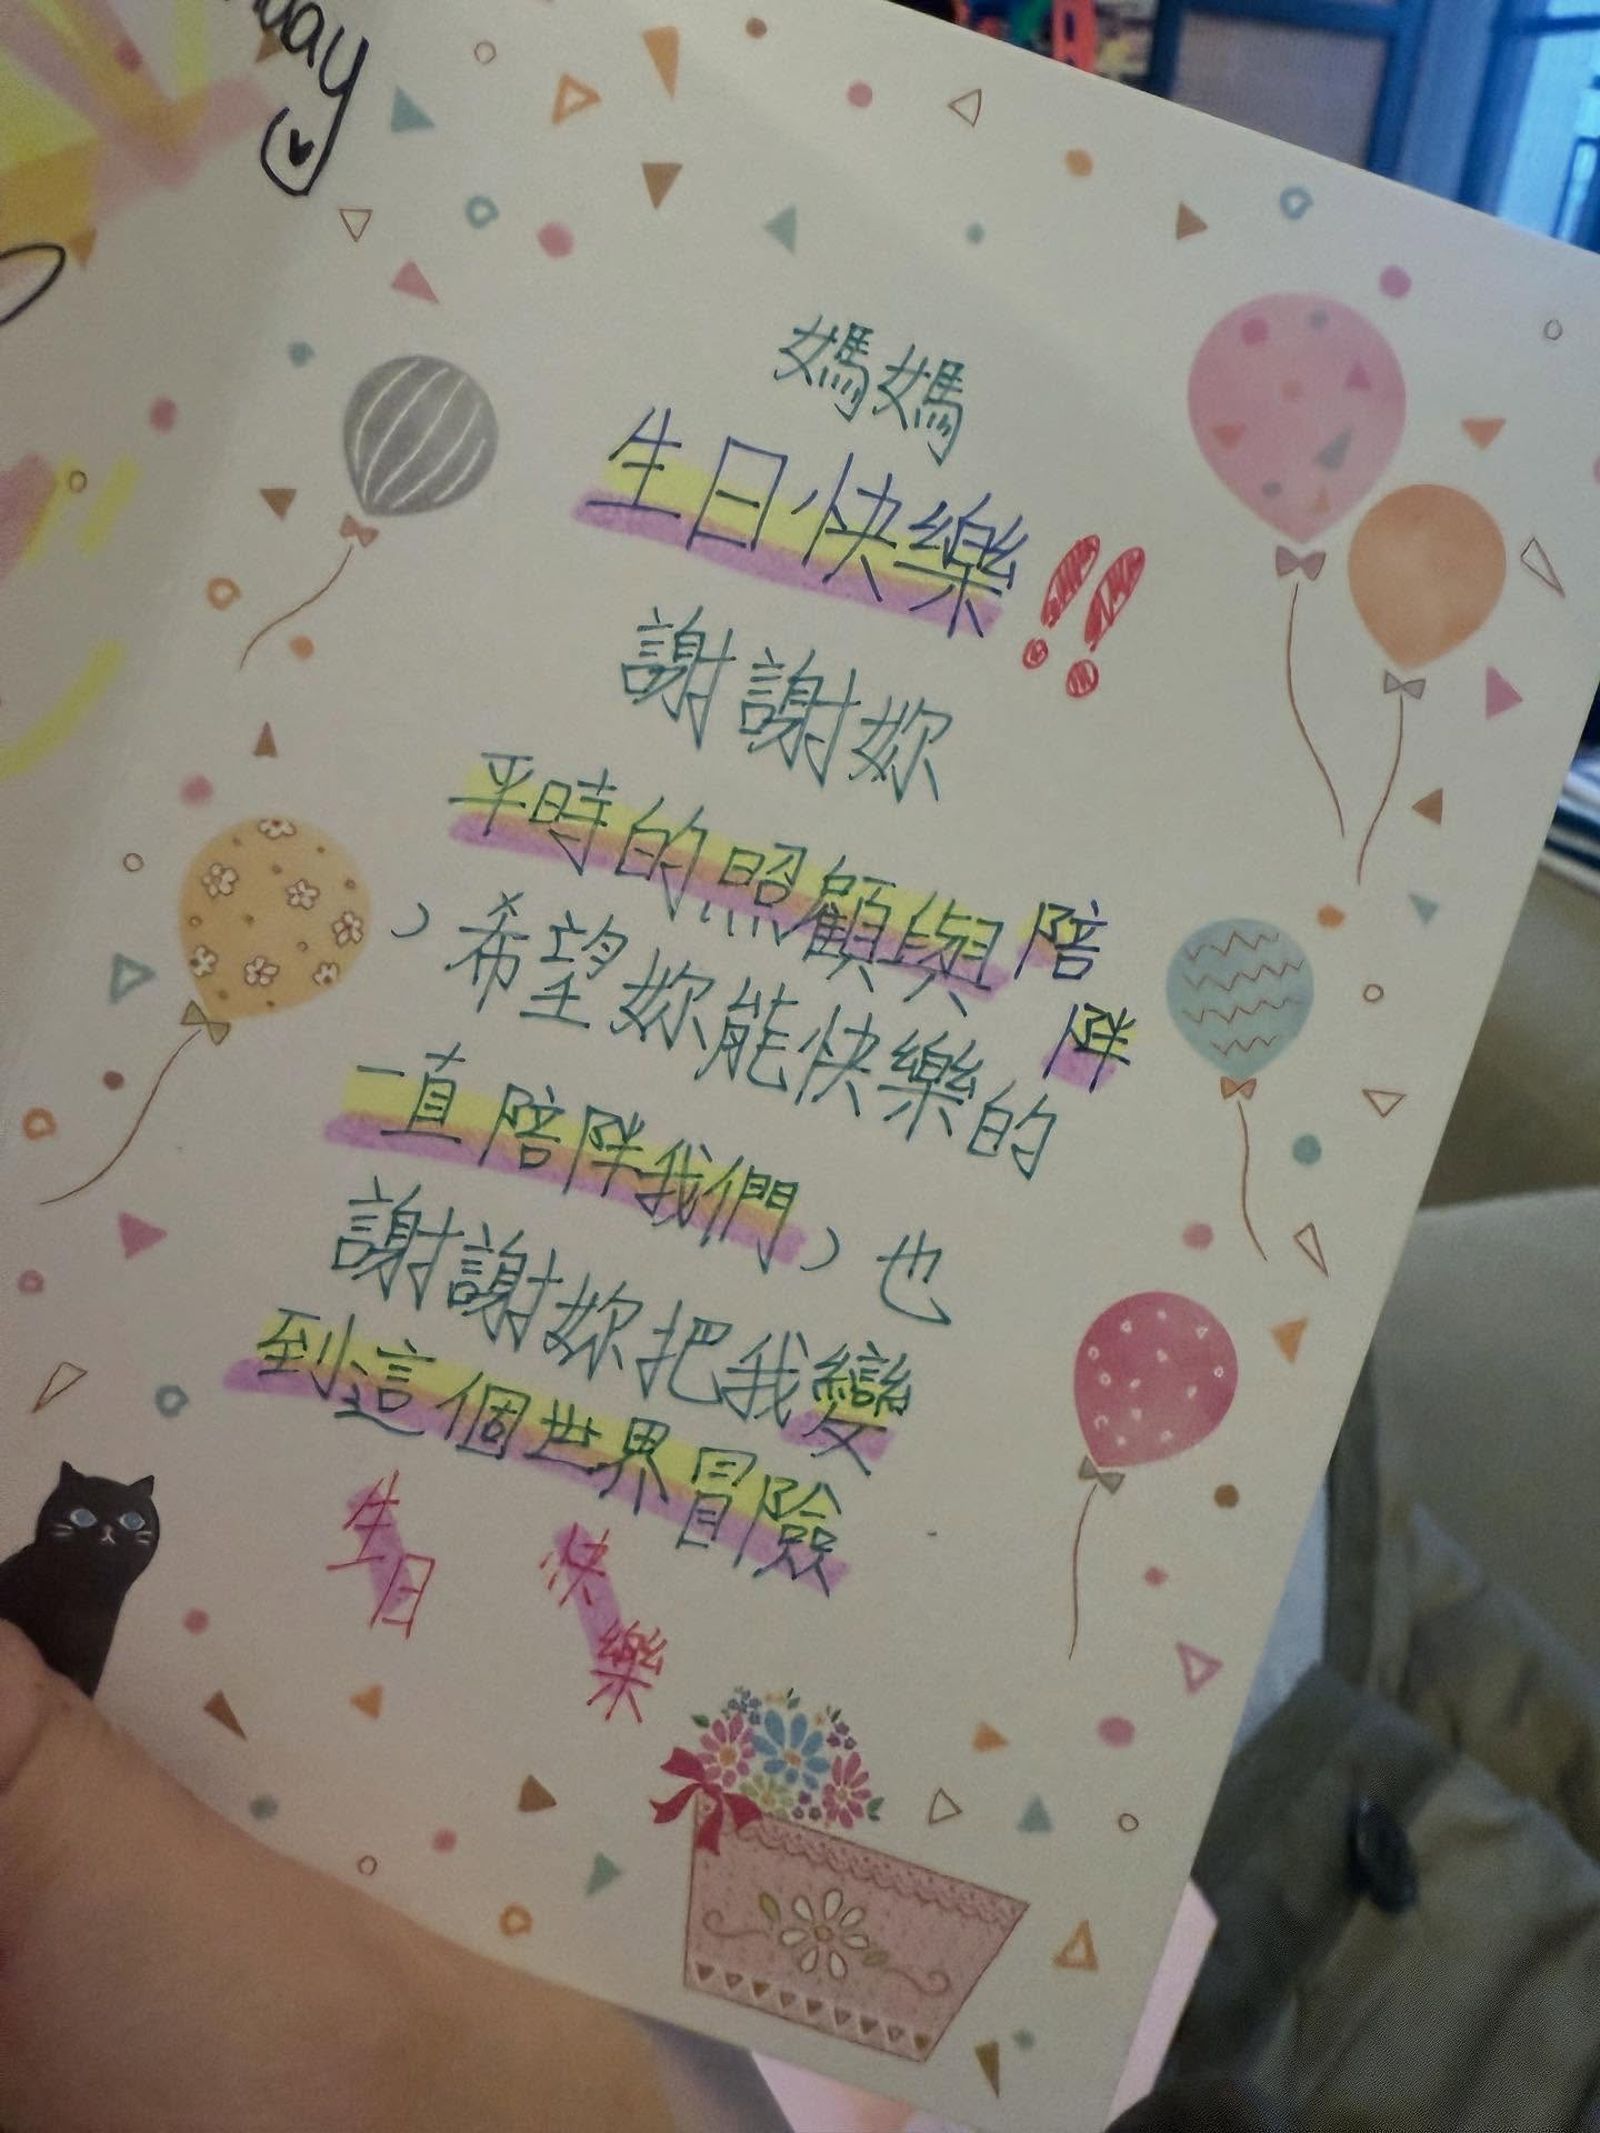 媽媽
生日快樂!!
謝謝妳
平時的照顧與陪
伴
，希望妳能快樂的
一直陪伴我們，也
謝謝妳把我變
到這個世界冒險
生日 快樂